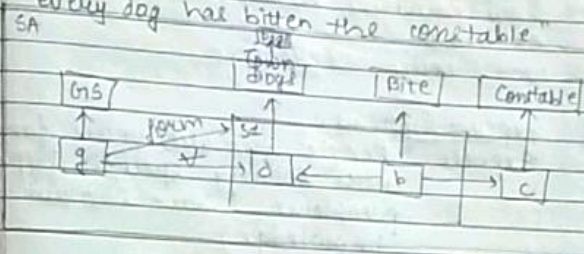 every dog has bitten the constable"
SA
Town
GS Dogs Bite Constable
form S1
g ∀ d b c